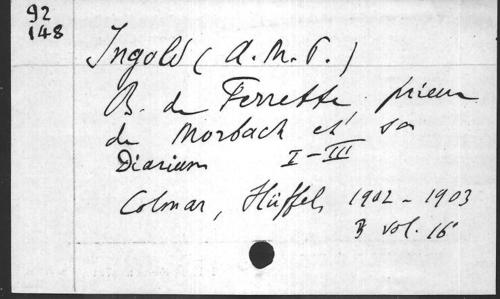 92
148
Ingold (A.M.P.)
B. de Ferrette, prieur
de Morbach et son
Diarium I-III
Colmar, Hüffel, 1902-1903
3 vol. 16°